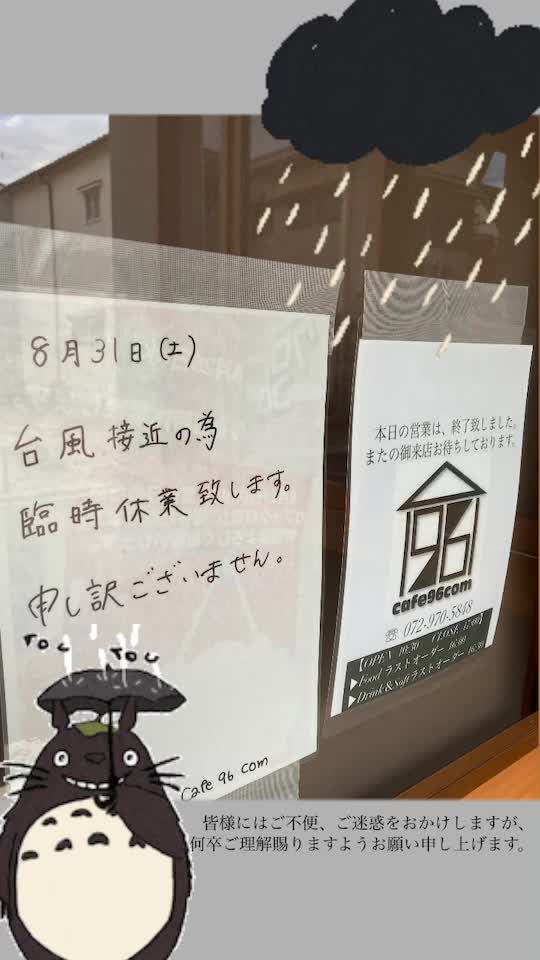 8月31日(土)
台風接近の為
臨時休業致します。
申し訳ございません。
cafe 96 com
本日の営業は、終了致しました。
またの御来店お待ちしております。
96
cafe96com
☏ 072-970-5848
【OPEN 10:30 CLOSE 17:00】
▶Food ラストオーダー 16:00
▶Drink&Softラストオーダー 16:30
皆様にはご不便、ご迷惑をおかけしますが、
何卒ご理解賜りますようお願い申し上げます。